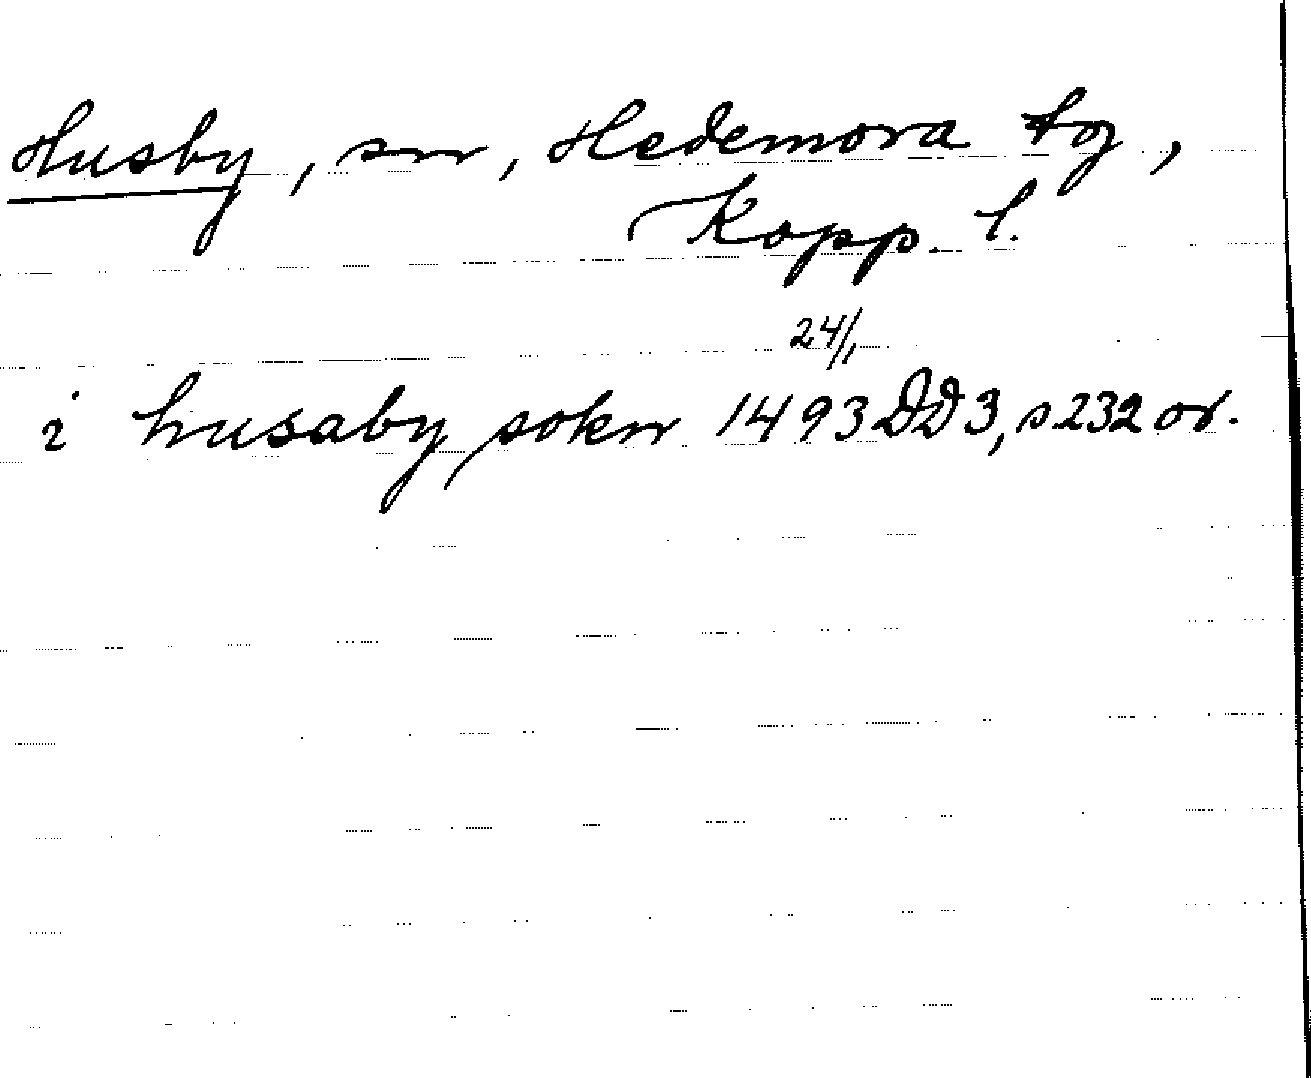 Husby, sn, Hedemora tg,
Kopp. l.
24/1
i husaby sokn 1493 DD 3, s. 232 or.